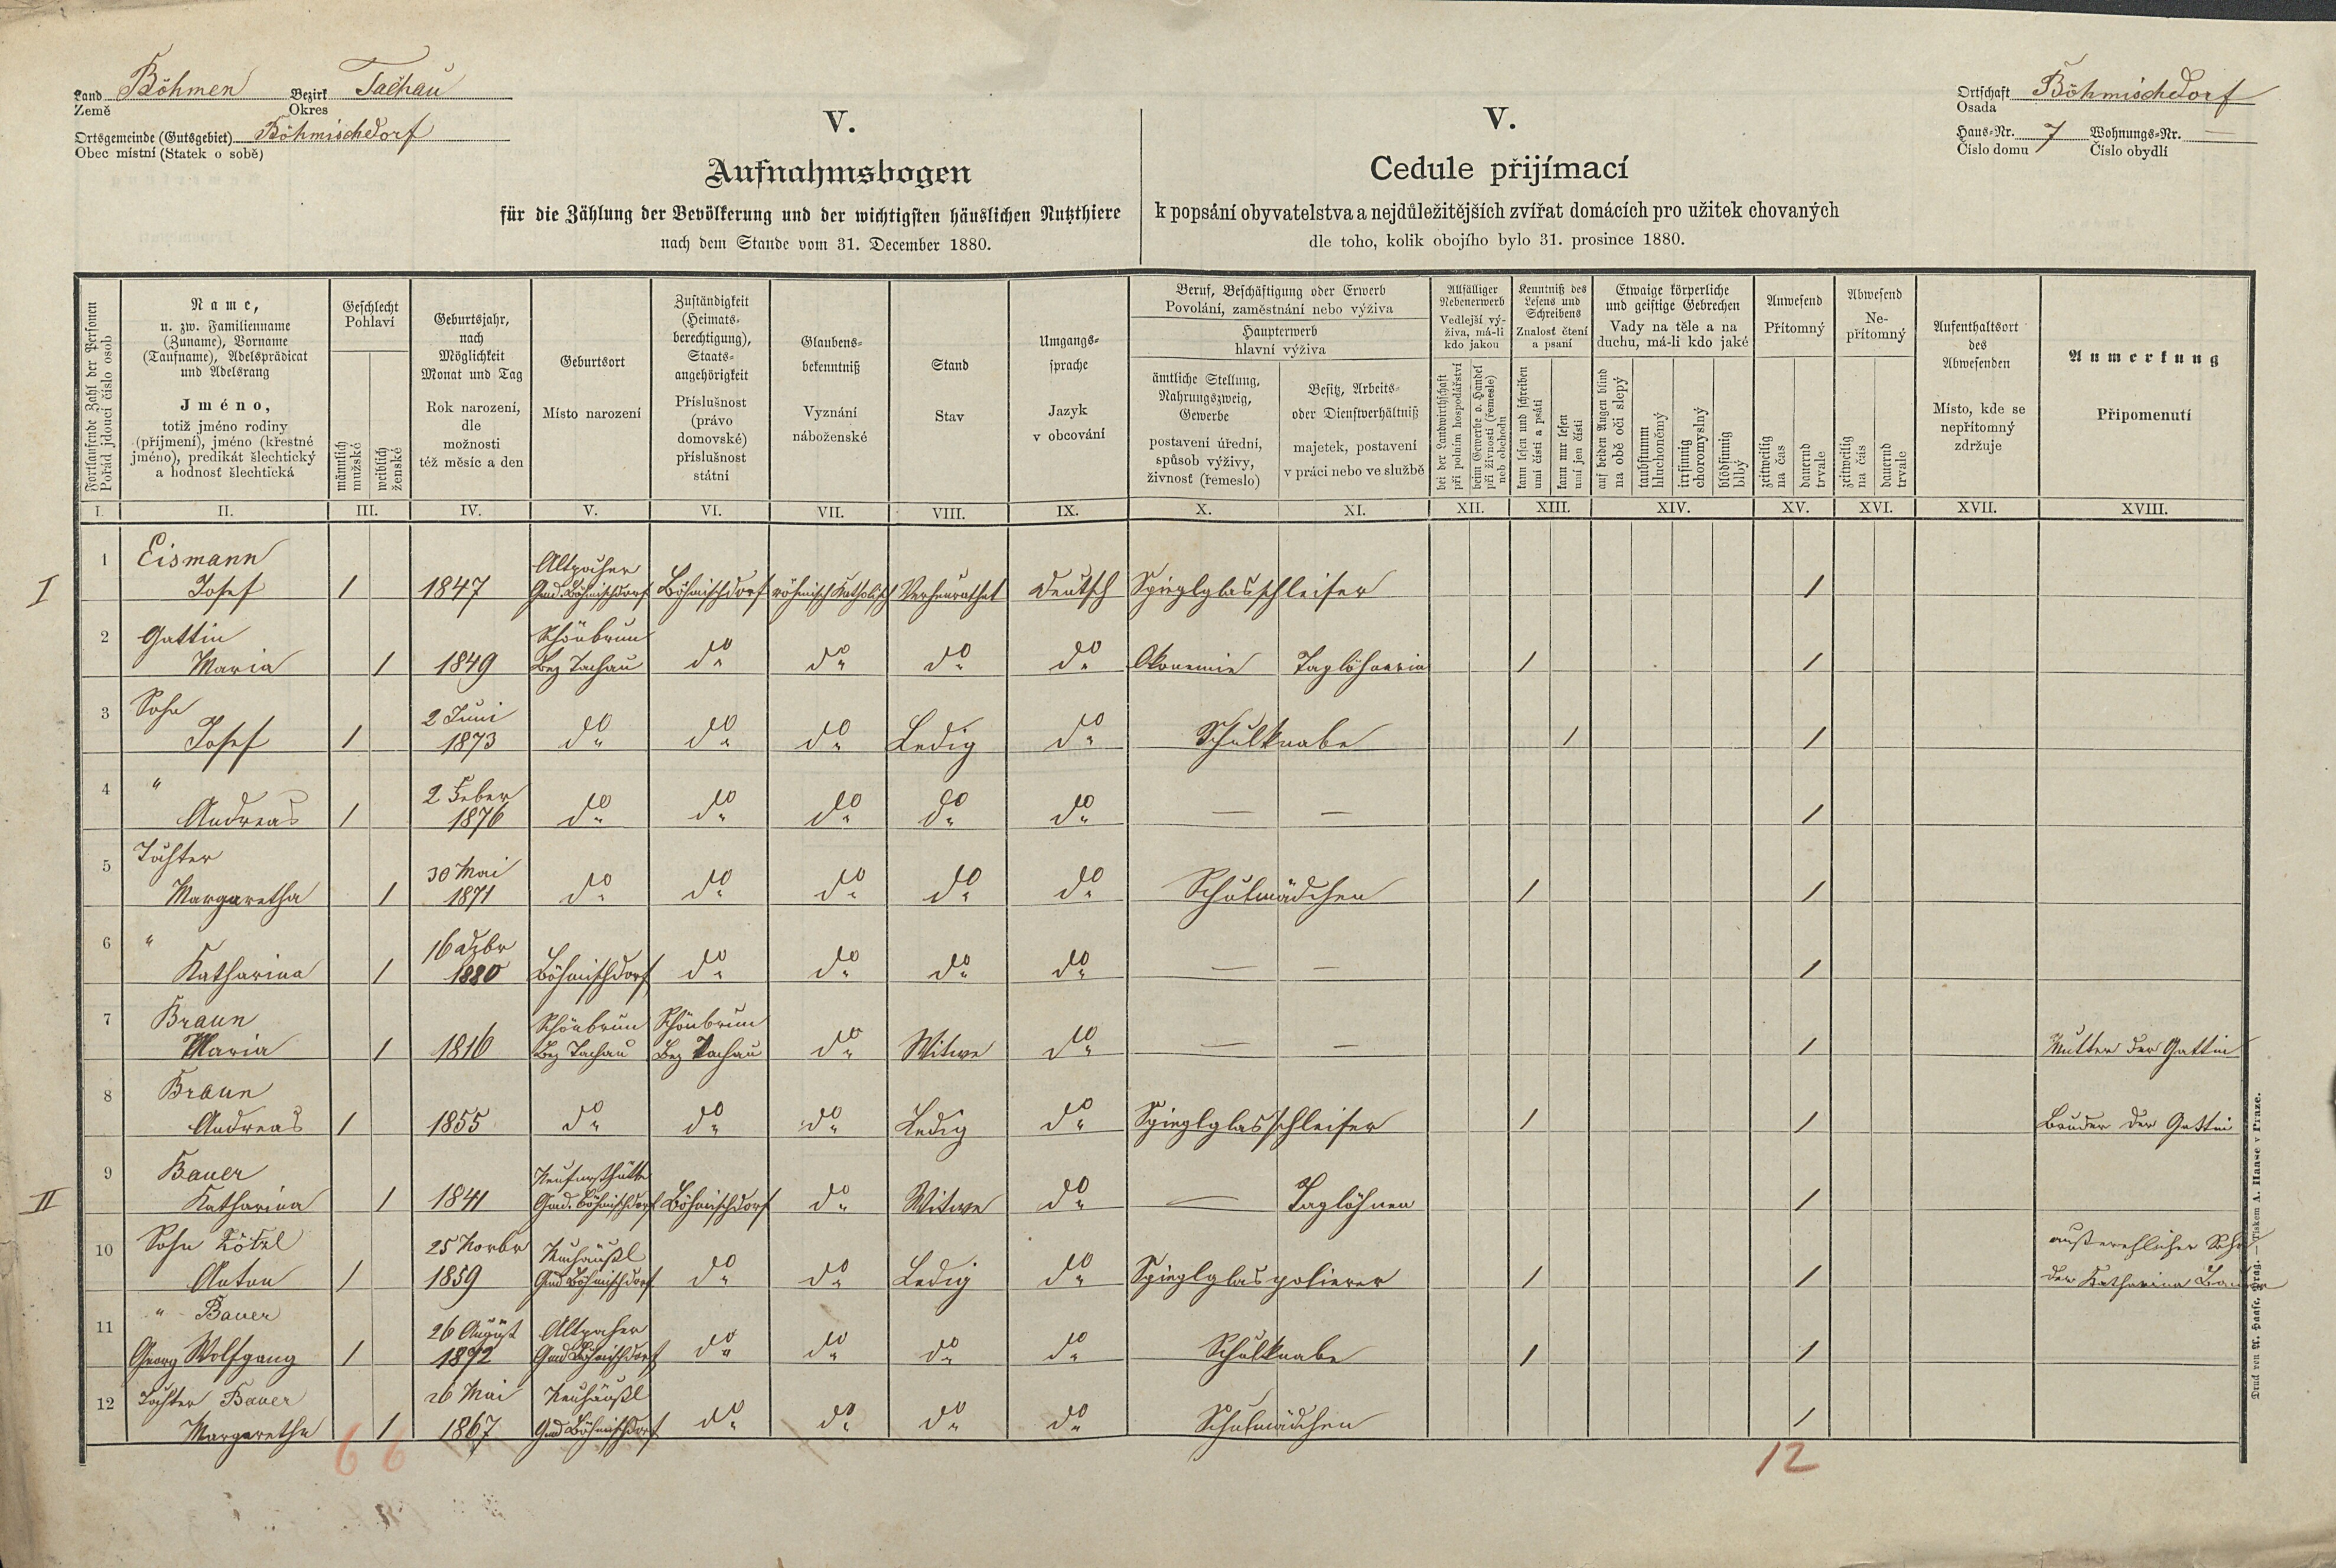 Land Böhmen Bezirk Tachau
Země Okres
Ortsgemeinde (Gutsgebiet) Böhmischdorf
Obec místní (Statek o sobě)
Ortschaft Böhmischdorf
Osada
Haus-Nr. 7 Wohnungs-Nr. —
Číslo domu Číslo obydlí
V.
Aufnahmsbogen
für die Zählung der Bevölkerung und der wichtigsten häuslichen Nutzthiere
nach dem Stande vom 31. December 1880.
V.
Cedule přijímací
k popsání obyvatelstva a nejdůležitějších zvířat domácích pro užitek chovaných
dle toho, kolik obojího bylo 31. prosince 1880.
Fortlaufende Zahl der Personen
Pořád jdoucí číslo osob
Name,
u. zw. Familienname
(Zuname), Vorname
(Taufname), Adelsprädicat
und Adelsrang
Jméno,
totiž jméno rodiny
(příjmení), jméno (křestné
jméno), predikát šlechtický
a hodnosť šlechtická
Geschlecht
Pohlaví
männlich
mužské
weiblich
ženské
Geburtsjahr,
nach
Möglichkeit
Monat und Tag
Rok narození,
dle
možnosti
též měsíc a den
Geburtsort
Místo narození
Zuständigkeit
(Heimats-
berechtigung),
Staats-
angehörigkeit
Příslušnost
(právo
domovské)
příslušnost
státní
Glaubens-
bekenntniß
Vyznání
náboženské
Stand
Stav
Umgangs-
sprache
Jazyk
v obcování
Beruf, Beschäftigung oder Erwerb
Povolání, zaměstnání nebo výživa
Haupterwerb
hlavní výživa
ämtliche Stellung,
Nahrungszweig,
Gewerbe
postavení úřední,
spůsob výživy,
živnosť (řemeslo)
Besitz, Arbeits-
oder Dienstverhältniß
majetek, postavení
v práci nebo ve službě
Allfälliger
Nebenerwerb
Vedlejší vý-
živa, má-li
kdo jakou
bei der Landwirthschaft
při polním hospodářství
beim Gewerbe o. Handel
při živnosti (řemesle)
neb obchodu
Kenntniß des
Lesens und
Schreibens
Znalosť čtení
a psaní
kann lesen und schreiben
umí čísti a psáti
kann nur lesen
umí jen čísti
Etwaige körperliche
und geistige Gebrechen
Vady na těle a na
duchu, má-li kdo jaké
auf beiden Augen blind
na obě oči slepý
taubstumm
hluchoněmý
irrsinnig
choromyslný
blödsinnig
blbý
Anwesend
Přítomný
zeitweilig
na čas
dauernd
trvale
Abwesend
Ne-
přítomný
zeitweilig
na čas
dauernd
trvale
Aufenthaltsort
des
Abwesenden
Místo, kde se
nepřítomný
zdržuje
Anmerkung
Připomenutí
I. II. III. IV. V. VI. VII. VIII. IX. X. XI. XII. XIII. XIV. XV. XVI. XVII. XVIII.
1 Eismann Altpocher
I Josef 1 1847 Gmd. Böhmischdorf Böhmischdorf römisch Katholisch Verheurathet Deutsch Spieglglasschleifer 1
2 Gattin Schönbrun
Maria 1 1849 Bez Tachau do do do do Okonomie Taglöhnerin 1 1
3 Sohn 2 Juni
Josef 1 1873 do do do Ledig do Schulknabe 1 1
4 " 2 Feber
Andreas 1 1876 do do do do do — — 1
5 Tochter 30 Mai
Margaretha 1 1871 do do do do do Schulmädchen 1 1
6 " 16 Dzbr
Katharina 1 1880 Böhmischdorf do do do do — — 1
7 Braun Schönbrun Schönbrun
Maria 1 1816 Bez Tachau Bez Tachau do Witwe do — — 1 Mutter der Gattin
8 Braun
Andreas 1 1855 do do do Ledig do Spieglglasschleifer 1 1 Bruder der Gattin
9 Bauer Neufürsthütte
II Katharina 1 1841 Gmd. Böhmischdorf Böhmischdorf do Witwe do — Taglöhner 1
10 Sohn Kötzl 25 Novbr Neuhäußl außerehlicher Sohn
Anton 1 1859 Gmd Böhmischdorf do do Ledig do Spieglglaspolierer 1 1 der Katharina Bauer
11 " Bauer 26 August Altpocher
Georg Wolfgang 1 1872 Gmd Böhmischdorf do do do do Schulknabe 1 1
12 Tochter Bauer 26 Mai Neuhäußl
Margaretha 1 1867 Gmd Böhmischdorf do do do do Schulmädchen 1
6 6 12
Druck von A. Haase, Prag. — Tiskem A. Haase v Praze.